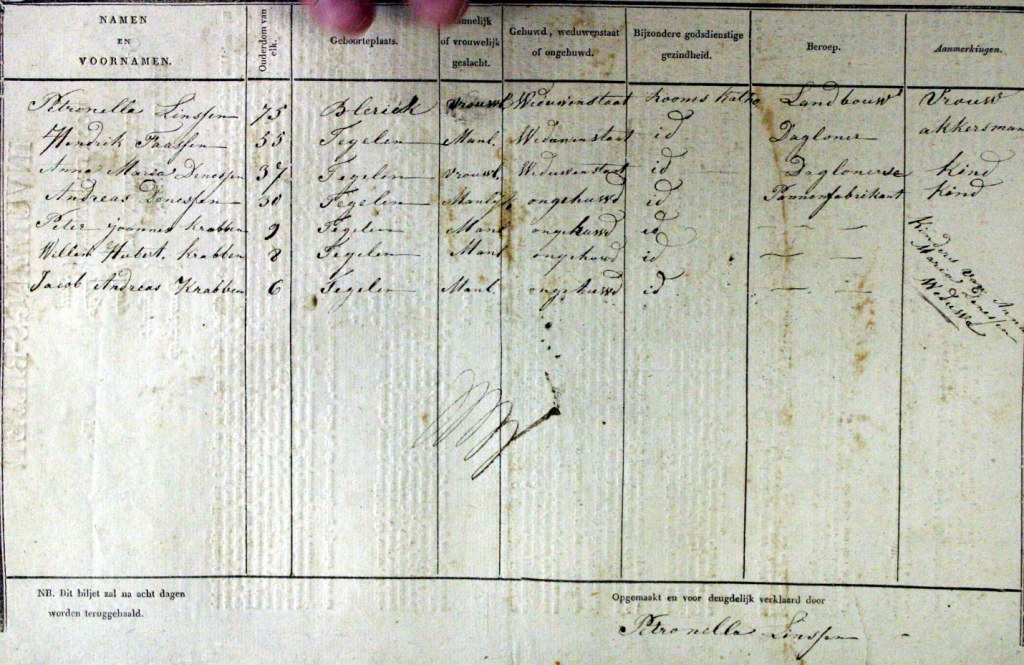 NAMEN EN VOORNAMEN. Ouderdom van elk. Geboorteplaats. of vrouwelijk geslacht. Gehuwd, weduwenstaat of ongehuwd. Bijzondere godsdienstige gezindheid. Beroep. Aanmerkingen.
Petronella Linssen 75 Blerick vrouwl Weduwenstaat Rooms Katho Landbouw Vrouw
Hendrik Faassen 55 Tegelen Manl. Weduwenstaat id Dagloner akkersman
Anna Maria Denessen 37 Tegelen vrouwl. Weduwenstaat id Daglonerse kind
Andreas Denessen 30 Tegelen ongehuwd id Pannenfabrikant kind
Peter joannes Krabben 9 Tegelen Manl ongehuwd id — — —
Willem Hubert. Krabben 8 Tegelen Manl ongehuwd id — —
Jacob Andreas Krabben 6 Tegelen Manl. ongehuwd id — — —
Kinders van Anna
Maria Denessen
Weduwe
NB. Dit biljet zal na acht dagen
worden teruggehaald.
Opgemaakt en voor deugdelijk verklaard door
Petronella Linssen